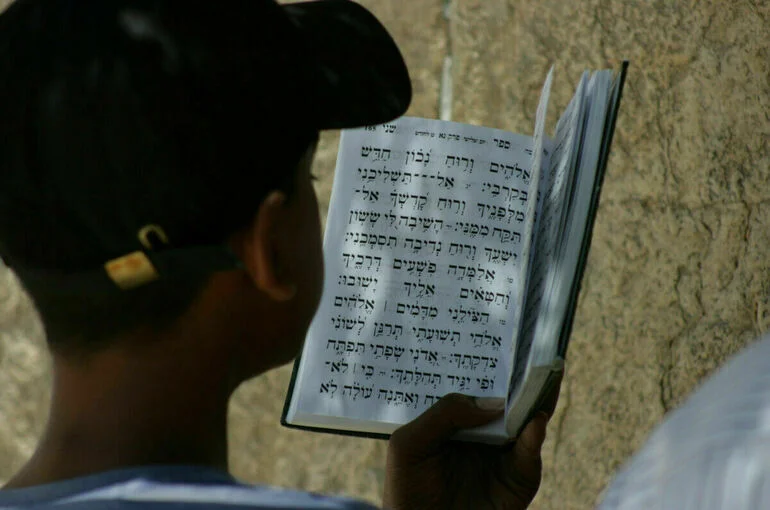 ספר שני יום שלישי פרק נא ט לחודש 165
אֱלֹהִים וְרוּחַ נָכוֹן חַדֵּשׁ
בְּקִרְבִּי׃ אַל־־־תַּשְׁלִיכֵנִי
מִלְּפָנֶיךָ וְרוּחַ קָדְשְׁךָ אַל־
תִּקַּח מִמֶּנִּי׃ הָשִׁיבָה לִּי שְׂשׂוֹן
יִשְׁעֶךָ וְרוּחַ נְדִיבָה תִסְמְכֵנִי׃
אֲלַמְּדָה פֹשְׁעִים דְּרָכֶיךָ
וְחַטָּאִים אֵלֶיךָ יָשׁוּבוּ׃
הַצִּילֵנִי מִדָּמִים ׀ אֱלֹהִים
אֱלֹהֵי תְּשׁוּעָתִי תְּרַנֵּן לְשׁוֹנִי
צִדְקָתֶךָ׃ אֲדֹנָי שְׂפָתַי תִּפְתָּח
וּפִי יַגִּיד תְּהִלָּתֶךָ׃ כִּי ׀ לֹא־
וְאֶתֵּנָה עוֹלָה לֹא